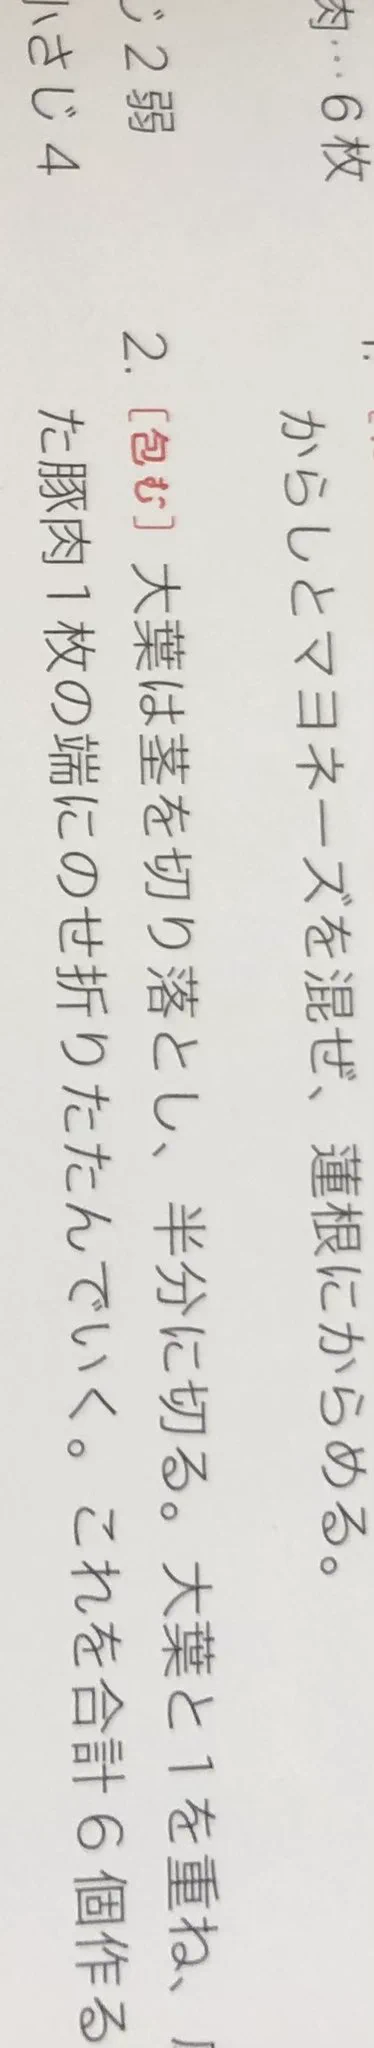 肉…6枚
じ2弱
小さじ4
1.
からしとマヨネーズを混ぜ、蓮根にからめる。
2.［包む］大葉は茎を切り落とし、半分に切る。大葉と1を重ね、
た豚肉1枚の端にのせ折りたたんでいく。これを合計6個作る